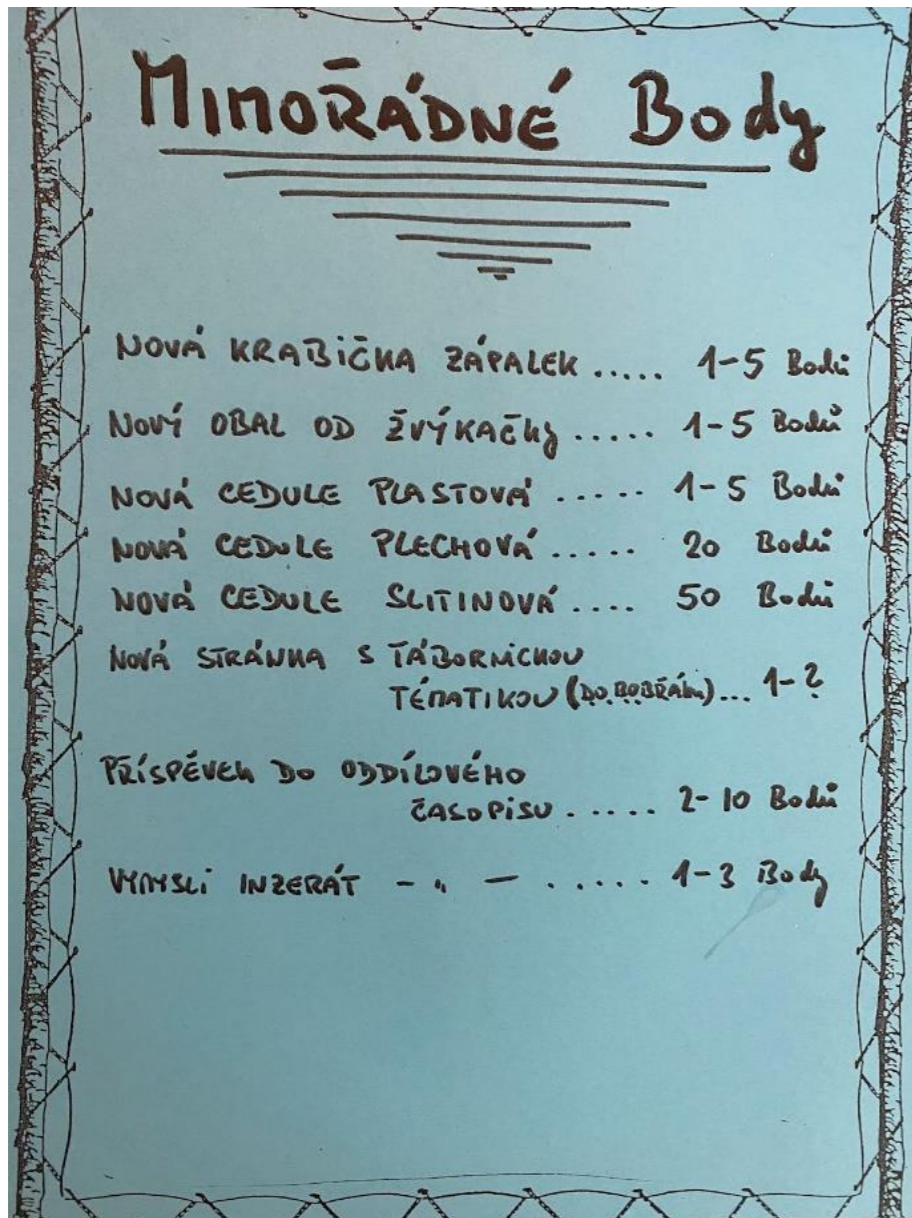 MIMOŘÁDNÉ Body
NOVÁ KRABIČKA ZÁPALEK ..... 1-5 Bodů
NOVÝ OBAL OD ŽVÝKAČKy ..... 1-5 Bodů
NOVÁ CEDULE PLASTOVÁ ..... 1-5 Bodů
NOVÁ CEDULE PLECHOVÁ ..... 20 Bodů
NOVÁ CEDULE SLITINOVÁ .... 50 Bodů
NOVÁ STRÁNKA S TÁBORNICKOU
TÉMATIKOU (DO BOBŘÁKu) ... 1-?
PŘÍSPĚVEK DO ODDÍLOVÉHO
ČASOPISU ..... 2-10 Bodů
VYMYSLI INZERÁT - „ - ..... 1-3 Body